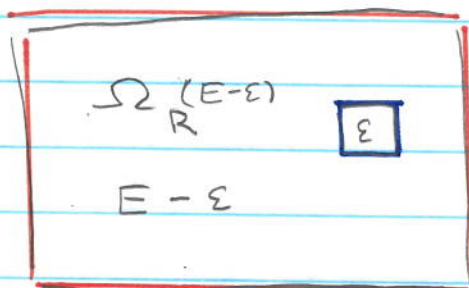 Ω_R (E-ε)
ε
E - ε